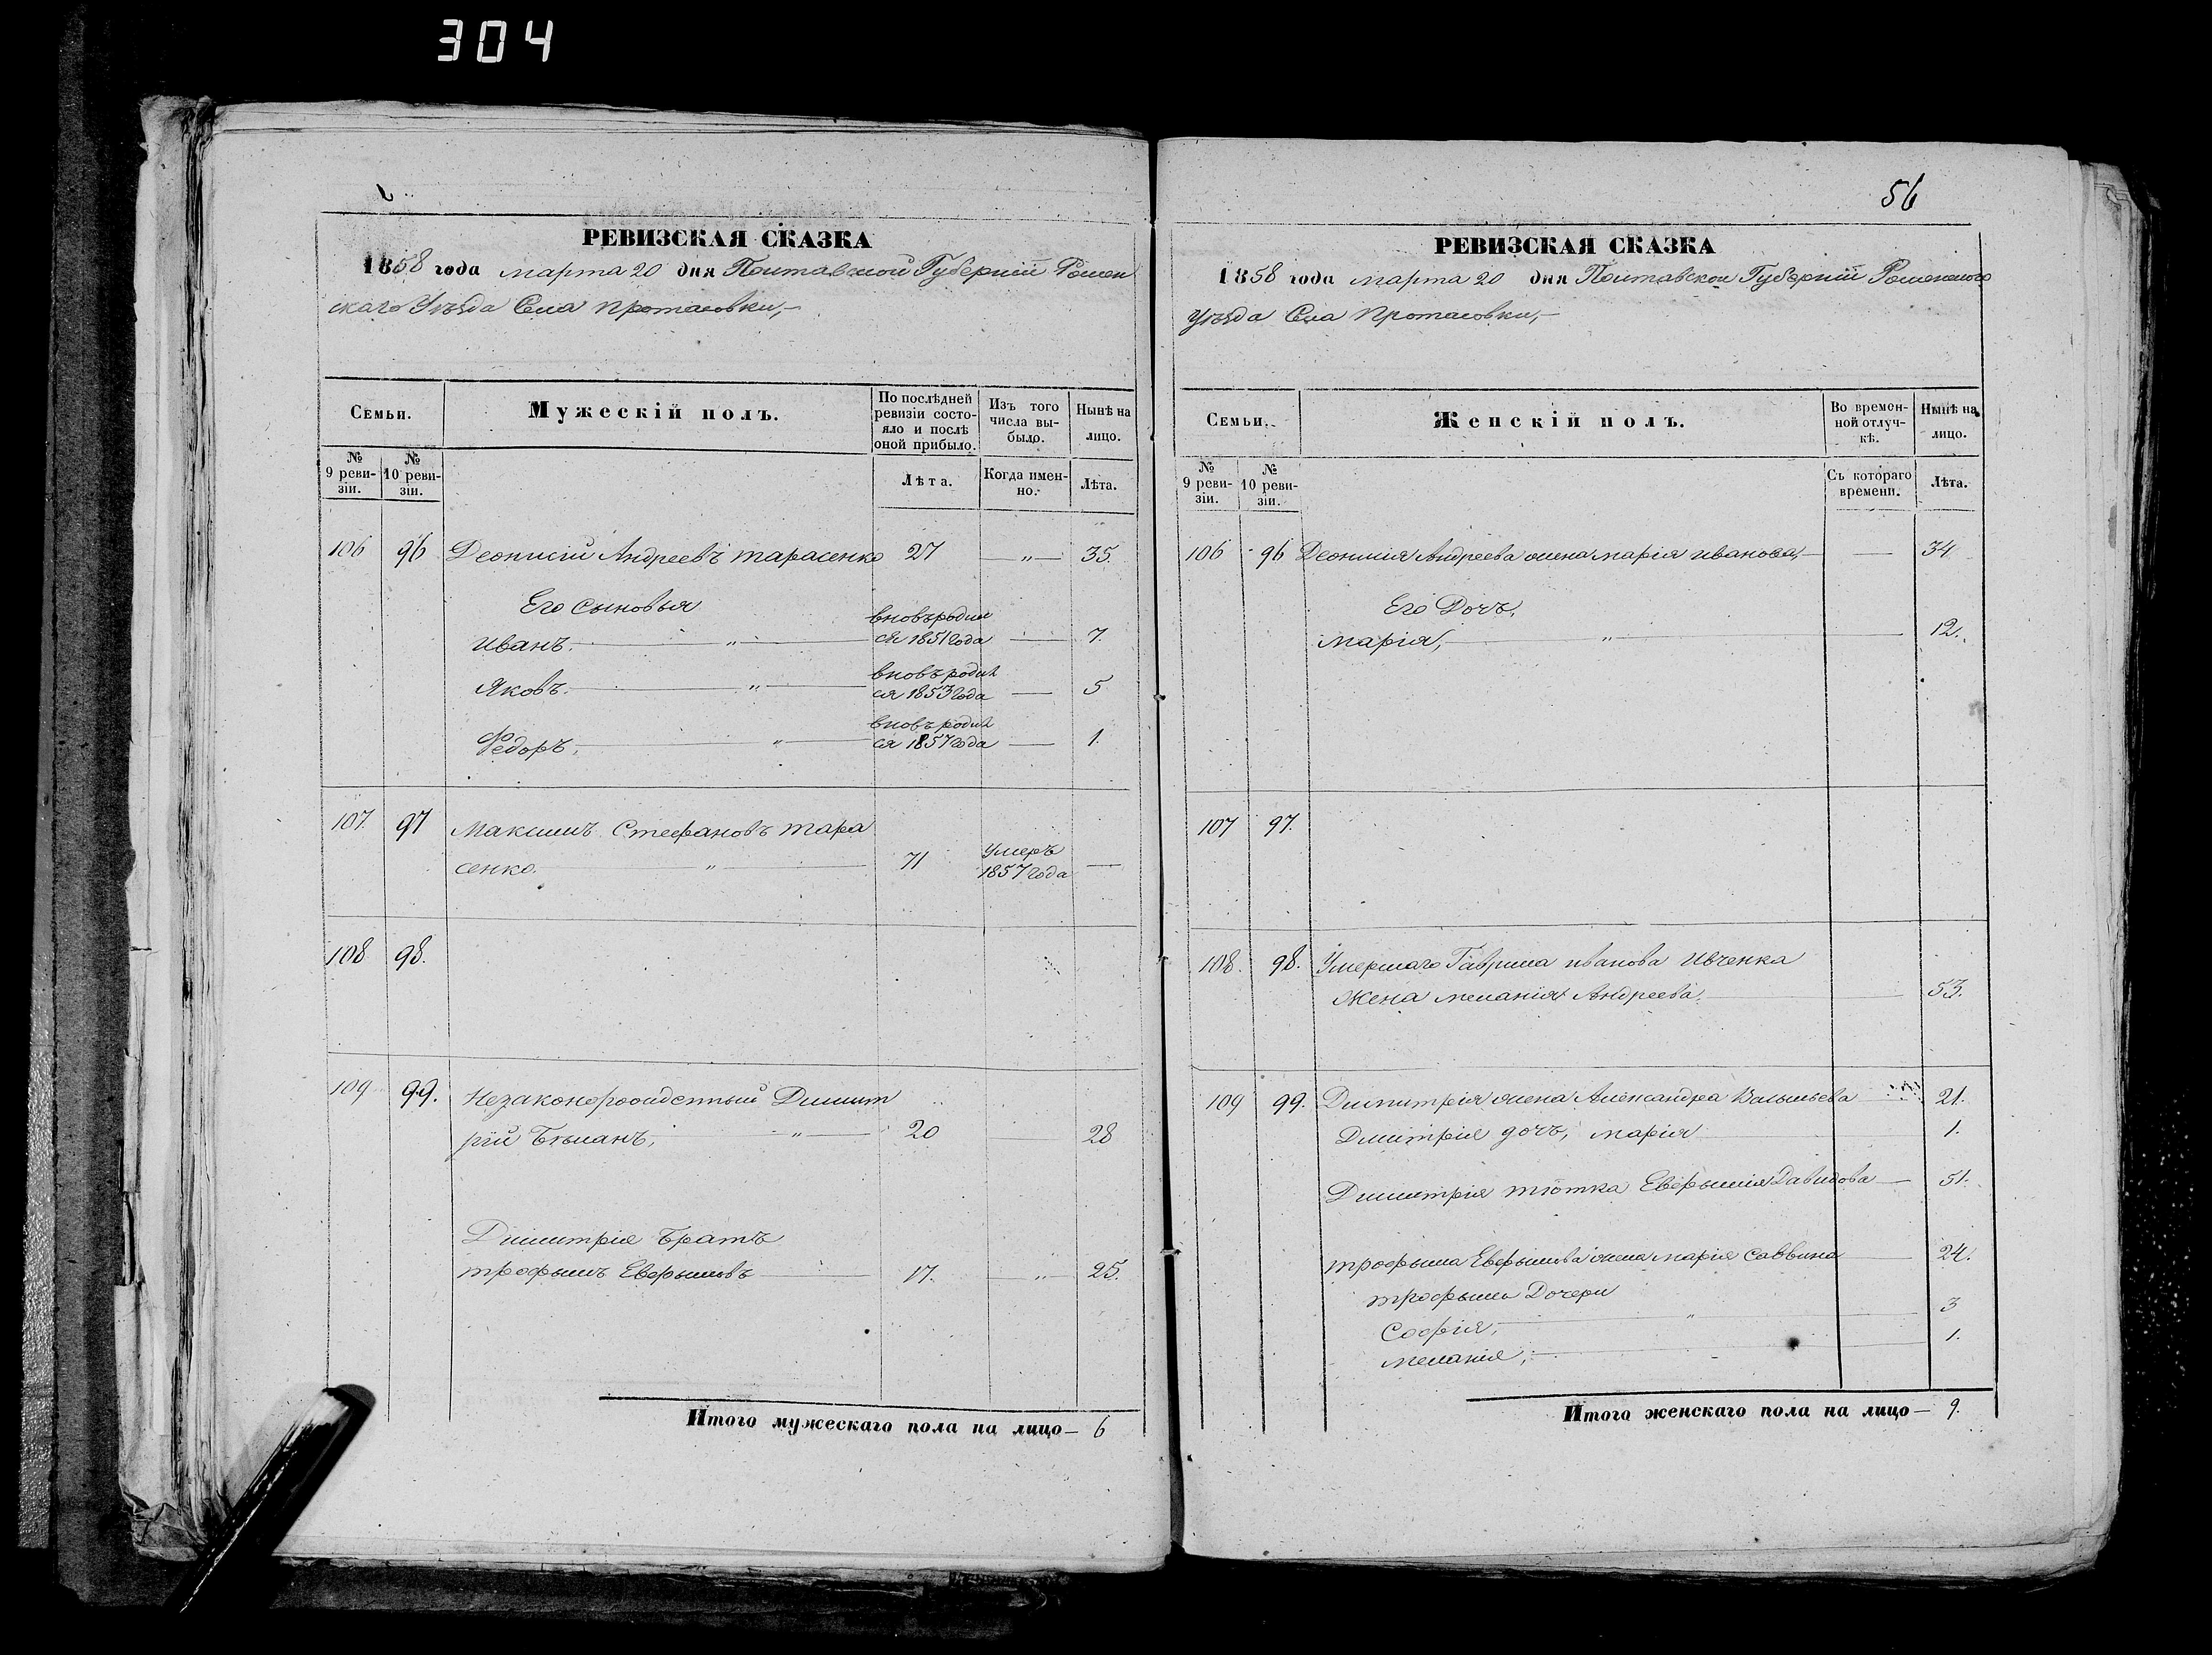 304
РЕВИЗСКАЯ СКАЗКА
1858 года марта 20 дня Полтавской Губернїй Ромен
скаго Уѣзда Села протасовки,
Семьи.
Мужескій полъ.
По послѣдней ревизіи состо-
яло и послѣ оной прибыло.
Изъ того числа вы-
было.
Нынѣ на лицо.
№ 9 реви-
зіи.
№ 10 реви-
зіи.
Лѣта.
Когда имен-
но.
Лѣта.
106 96 Деонисій Андреевъ тарасенко 27 — „ — 35.
Его сыновья
иванъ. „ вновъ родил
ся 1851 года — 7.
Яковъ. „ вновъ родил
ся 1853 года — 5
Федоръ, „ вновъ родил
ся 1857 года — 1.
107. 97 Максимъ Стефановъ тара
сенко. „ 71 умеръ
1857 года —
108 98.
109 99. Незаконорожденный Димит
рїй Бѣланъ, „ 20 28
Димитрія Братъ
трофымъ Евфымовъ 17. — „ 25.
Итого мужескаго пола на лицо— 6
56
РЕВИЗСКАЯ СКАЗКА
1858 года марта 20 дня Полтавской Губернїй Роменского
Уѣзда Села протасовки,
Семьи.
Женскій полъ.
Во времен-
ной отлуч-
кѣ.
Нынѣ на лицо.
№ 9 реви-
зіи.
№ 10 реви-
зіи.
Съ котораго времени.
Лѣта.
106 96 Деонисия Андреева жена марія иванова, — 34
Его Дочъ,
марія, „ 12.
107 97.
108. 98. Умершаго Гаврила иванова ивченка
жена меланія Андреева. 53.
109 99. Димитрія жена Александра Васильева 21.
Димитрія дочъ, марія 1.
Димитрія тютка Давидова — 51.
трофыма Евфымова жена марія саввина 24.
трофыма Дочери
Софія, „ 3
меланія, 1.
Итого женскаго пола на лицо— 9.